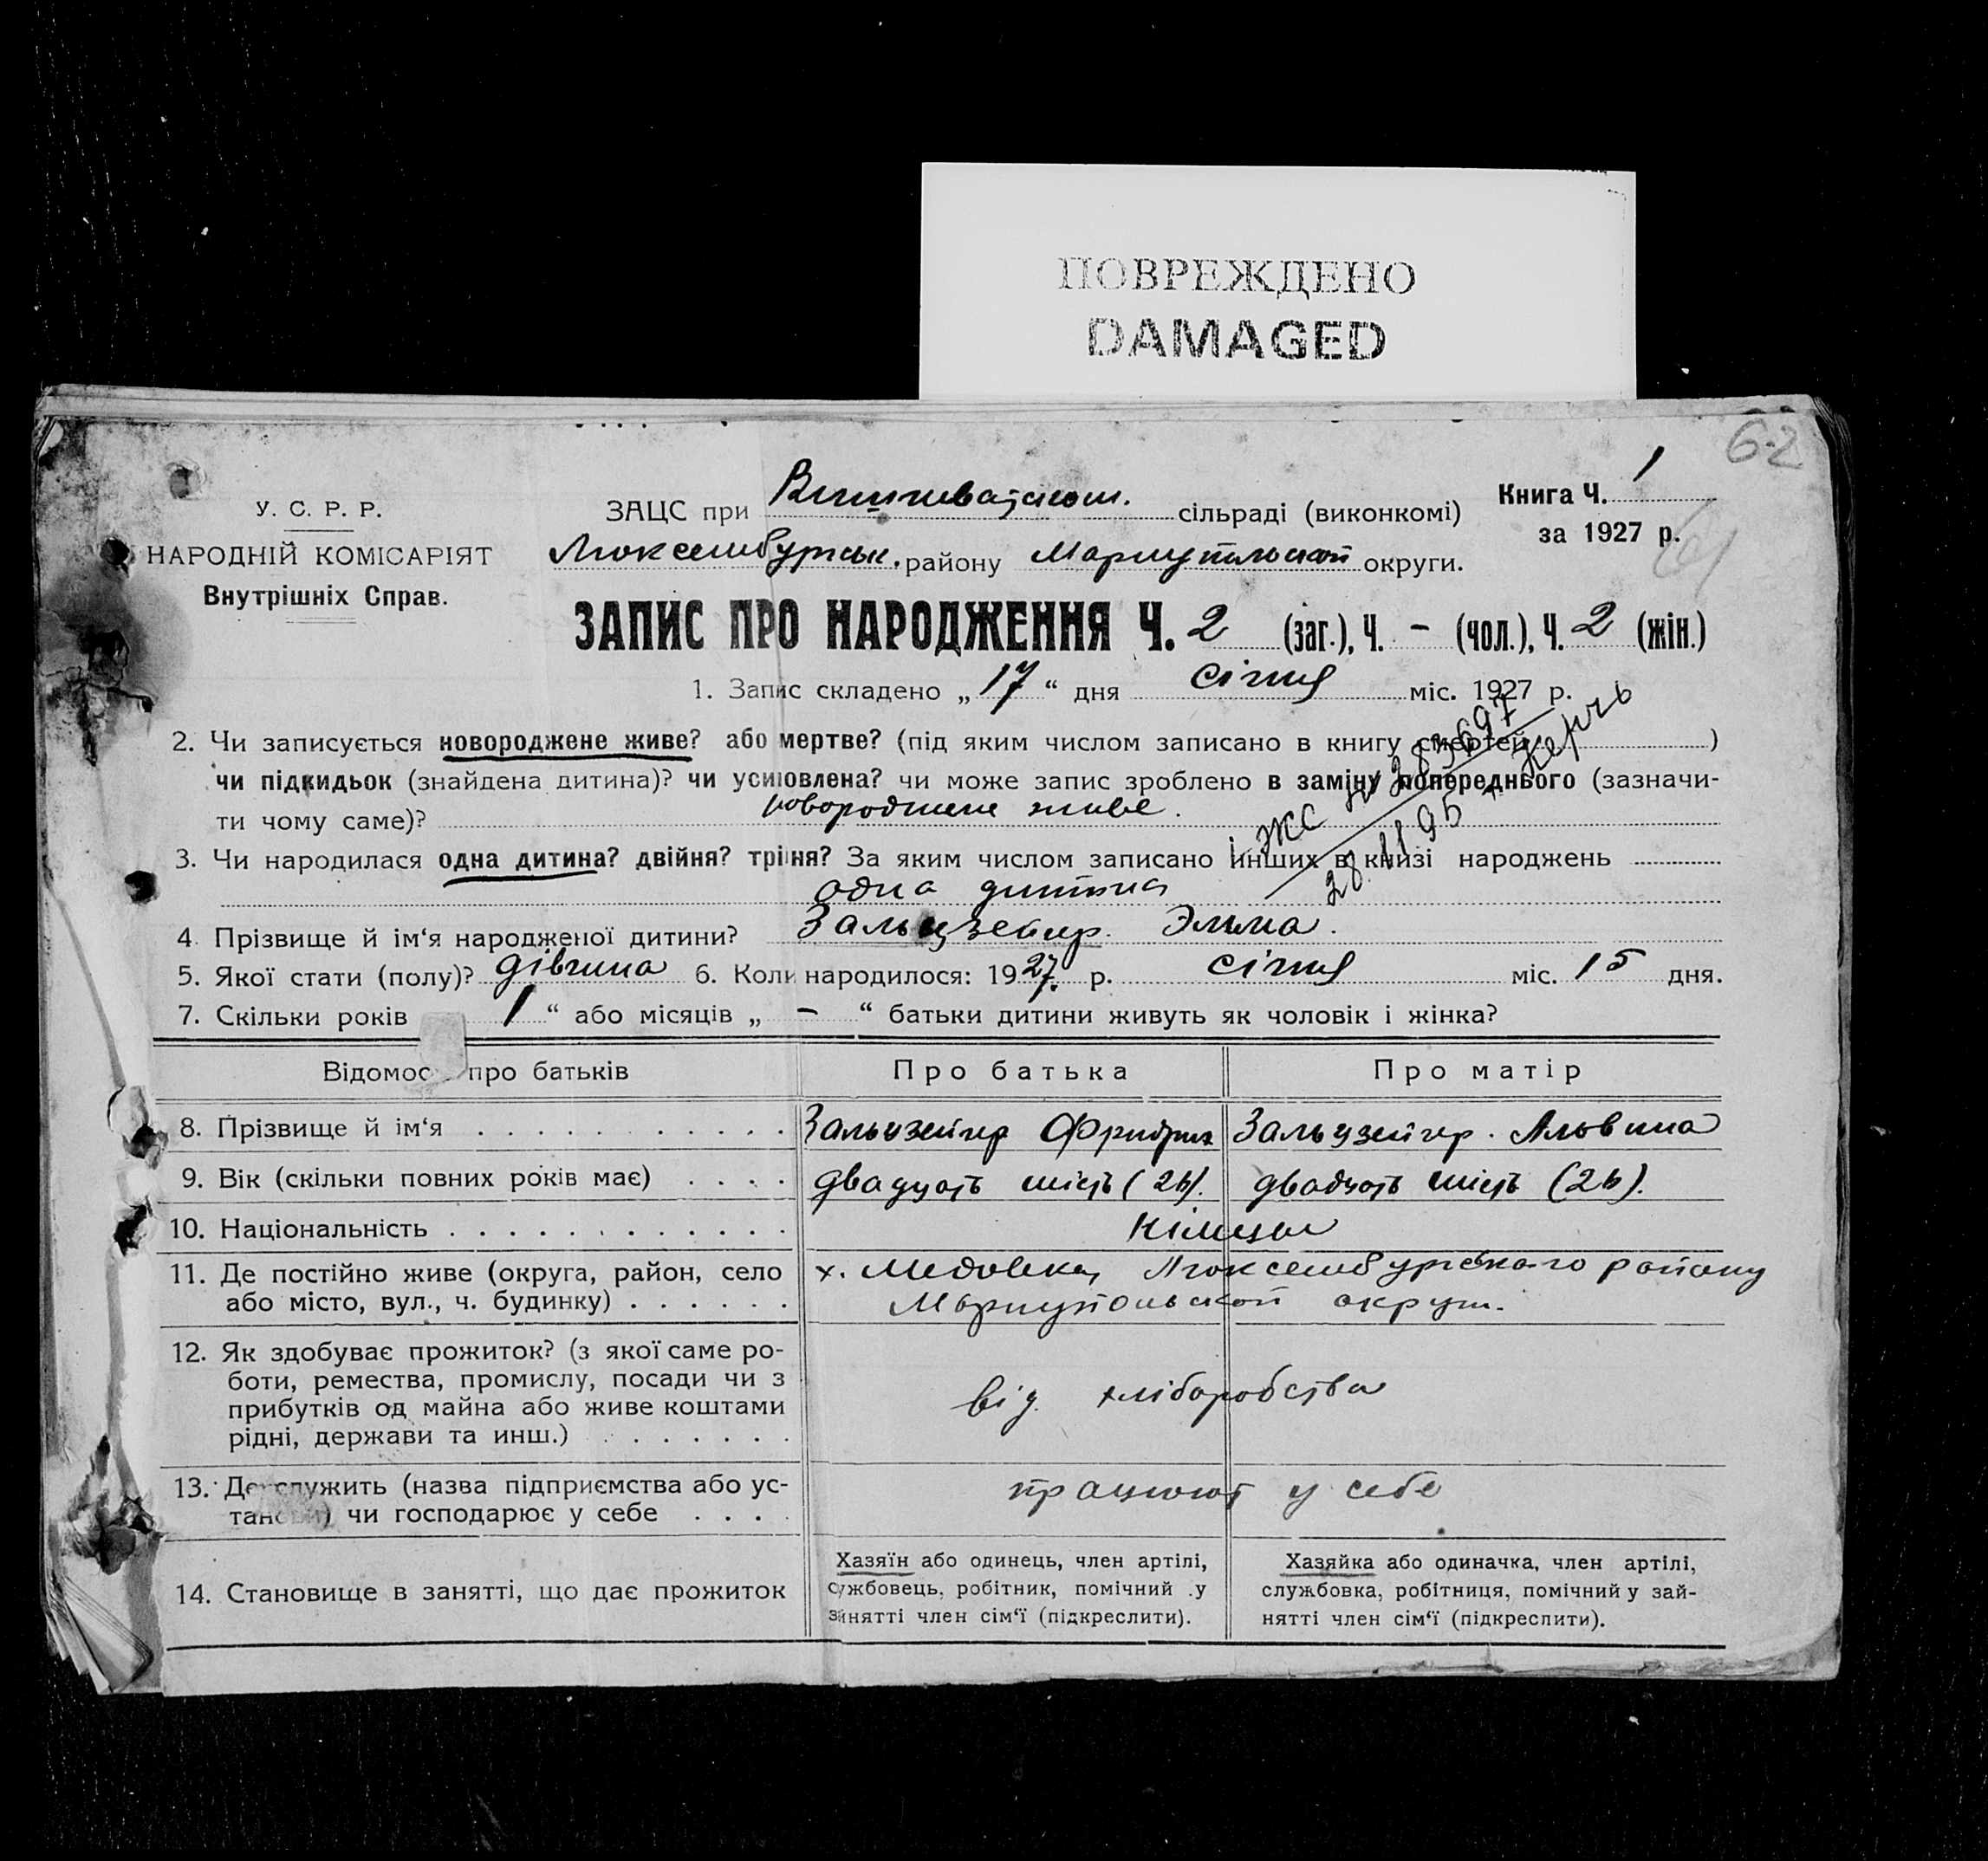 ПОВРЕЖДЕНО
DAMAGED
62
У. С. Р. Р.
НАРОДНІЙ КОМІСАРІЯТ
Внутрішніх Справ.
ЗАЦС при сільраді (виконкомі)
Книга Ч. 1
за 1927 р.
Люксембургськ. району Мариупольской округи.
ЗАПИС ПРО НАРОДЖЕННЯ Ч. 2 (заг.), Ч. – (чол.), Ч. 2 (жін.)
1. Запис складено „ 17 “ дня січня міс. 1927 р.
2. Чи записується новороджене живе? або мертве? (під яким числом записано в книгу смертей )
чи підкидьок (знайдена дитина)? чи усиновлена? чи може запис зроблено в заміну попереднього (зазначи-
ти чому саме)? новороджене живе.
3. Чи народилася одна дитина? двійня? трійня? За яким числом записано инших в книзі народжень
одна дитина
4. Прізвище й ім‘я народженої дитини? Зальцзейлер. Эльма.
5. Якої стати (полу)? дівчина 6. Коли народилося: 1927. р. січня міс. 15 дня.
7. Скільки років 1 “ або місяців „ – “ батьки дитини живуть як чоловік і жінка?
Відомос про батьків Про батька Про матір
8. Прізвище й ім‘я Зальцзейлер Фридрих Зальцзейлер. Альвина
9. Вік (скільки повних років має) двадцять шість (26). двадцять шість (26).
10. Національність Німцы
11. Де постійно живе (округа, район, село
або місто, вул., ч. будинку)
х. Медовка, Люксембургскаго району
Мариупольской округи.
12. Як здобуває прожиток? (з якої саме ро-
боти, ремества, промислу, посади чи з
прибутків од майна або живе коштами
рідні, держави та инш.)
від хліборобства
13. Де служить (назва підприємства або ус-
танови) чи господарює у себе
працюют у себе
14. Становище в занятті, що дає прожиток
Хазяїн або одинець, член артілі,
сужбовець, робітник, помічний у
занятті член сім‘ї (підкреслити).
Хазяйка або одиначка, член артілі,
службовка, робітниця, помічний у зай-
нятті член сім‘ї (підкреслити).